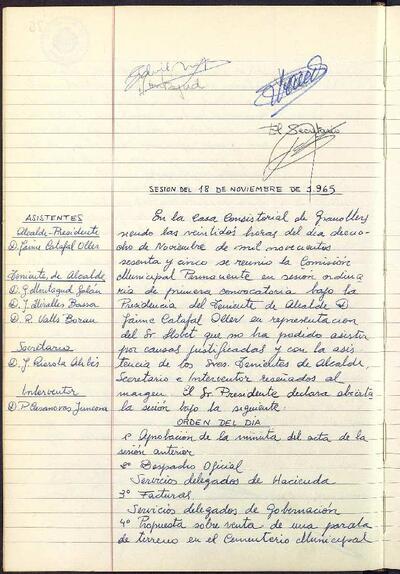 El Secretario
SESION DEL 18 DE NOVIEMBRE DE 1.965
ASISTENTES
Alcalde-Presidente
D. Jaime Catafal Oller
Teniente, de Alcalde
D. G. Montagud
D. J. Miralles Bassa
D. R. Valls Borau
Secretario
D. J. Pierola
Interventor
D. P. Casanovas Juncosa
En la Casa Consistorial de Granollers
siendo las veintidos horas del dia diecio-
cho de Noviembre de mil novecientos
sesenta y cinco se reunio la Comisión
Municipal Permanente en sesión ordina-
ria de primera convocatoria bajo la
Presidencia del Teniente de Alcalde D.
Jaime Catafal Oller en representacion
del Sr. Llobet que no ha podido asistir
por causas justificadas y con la asis-
tencia de los Sres. Tenientes de Alcalde,
Secretario e Interventor reseñados al
margen. El Sr. Presidente declara abierta
la sesión bajo la siguiente:
ORDEN DEL DIA
1º Aprobación de la minuta del acta de la
sesión anterior
2º Despacho Oficial
Servicios delegados de Hacienda
3º Facturas
Servicios delegados de Gobernación
4º Propuesta sobre venta de una parcela
de terreno en el Cementerio Municipal